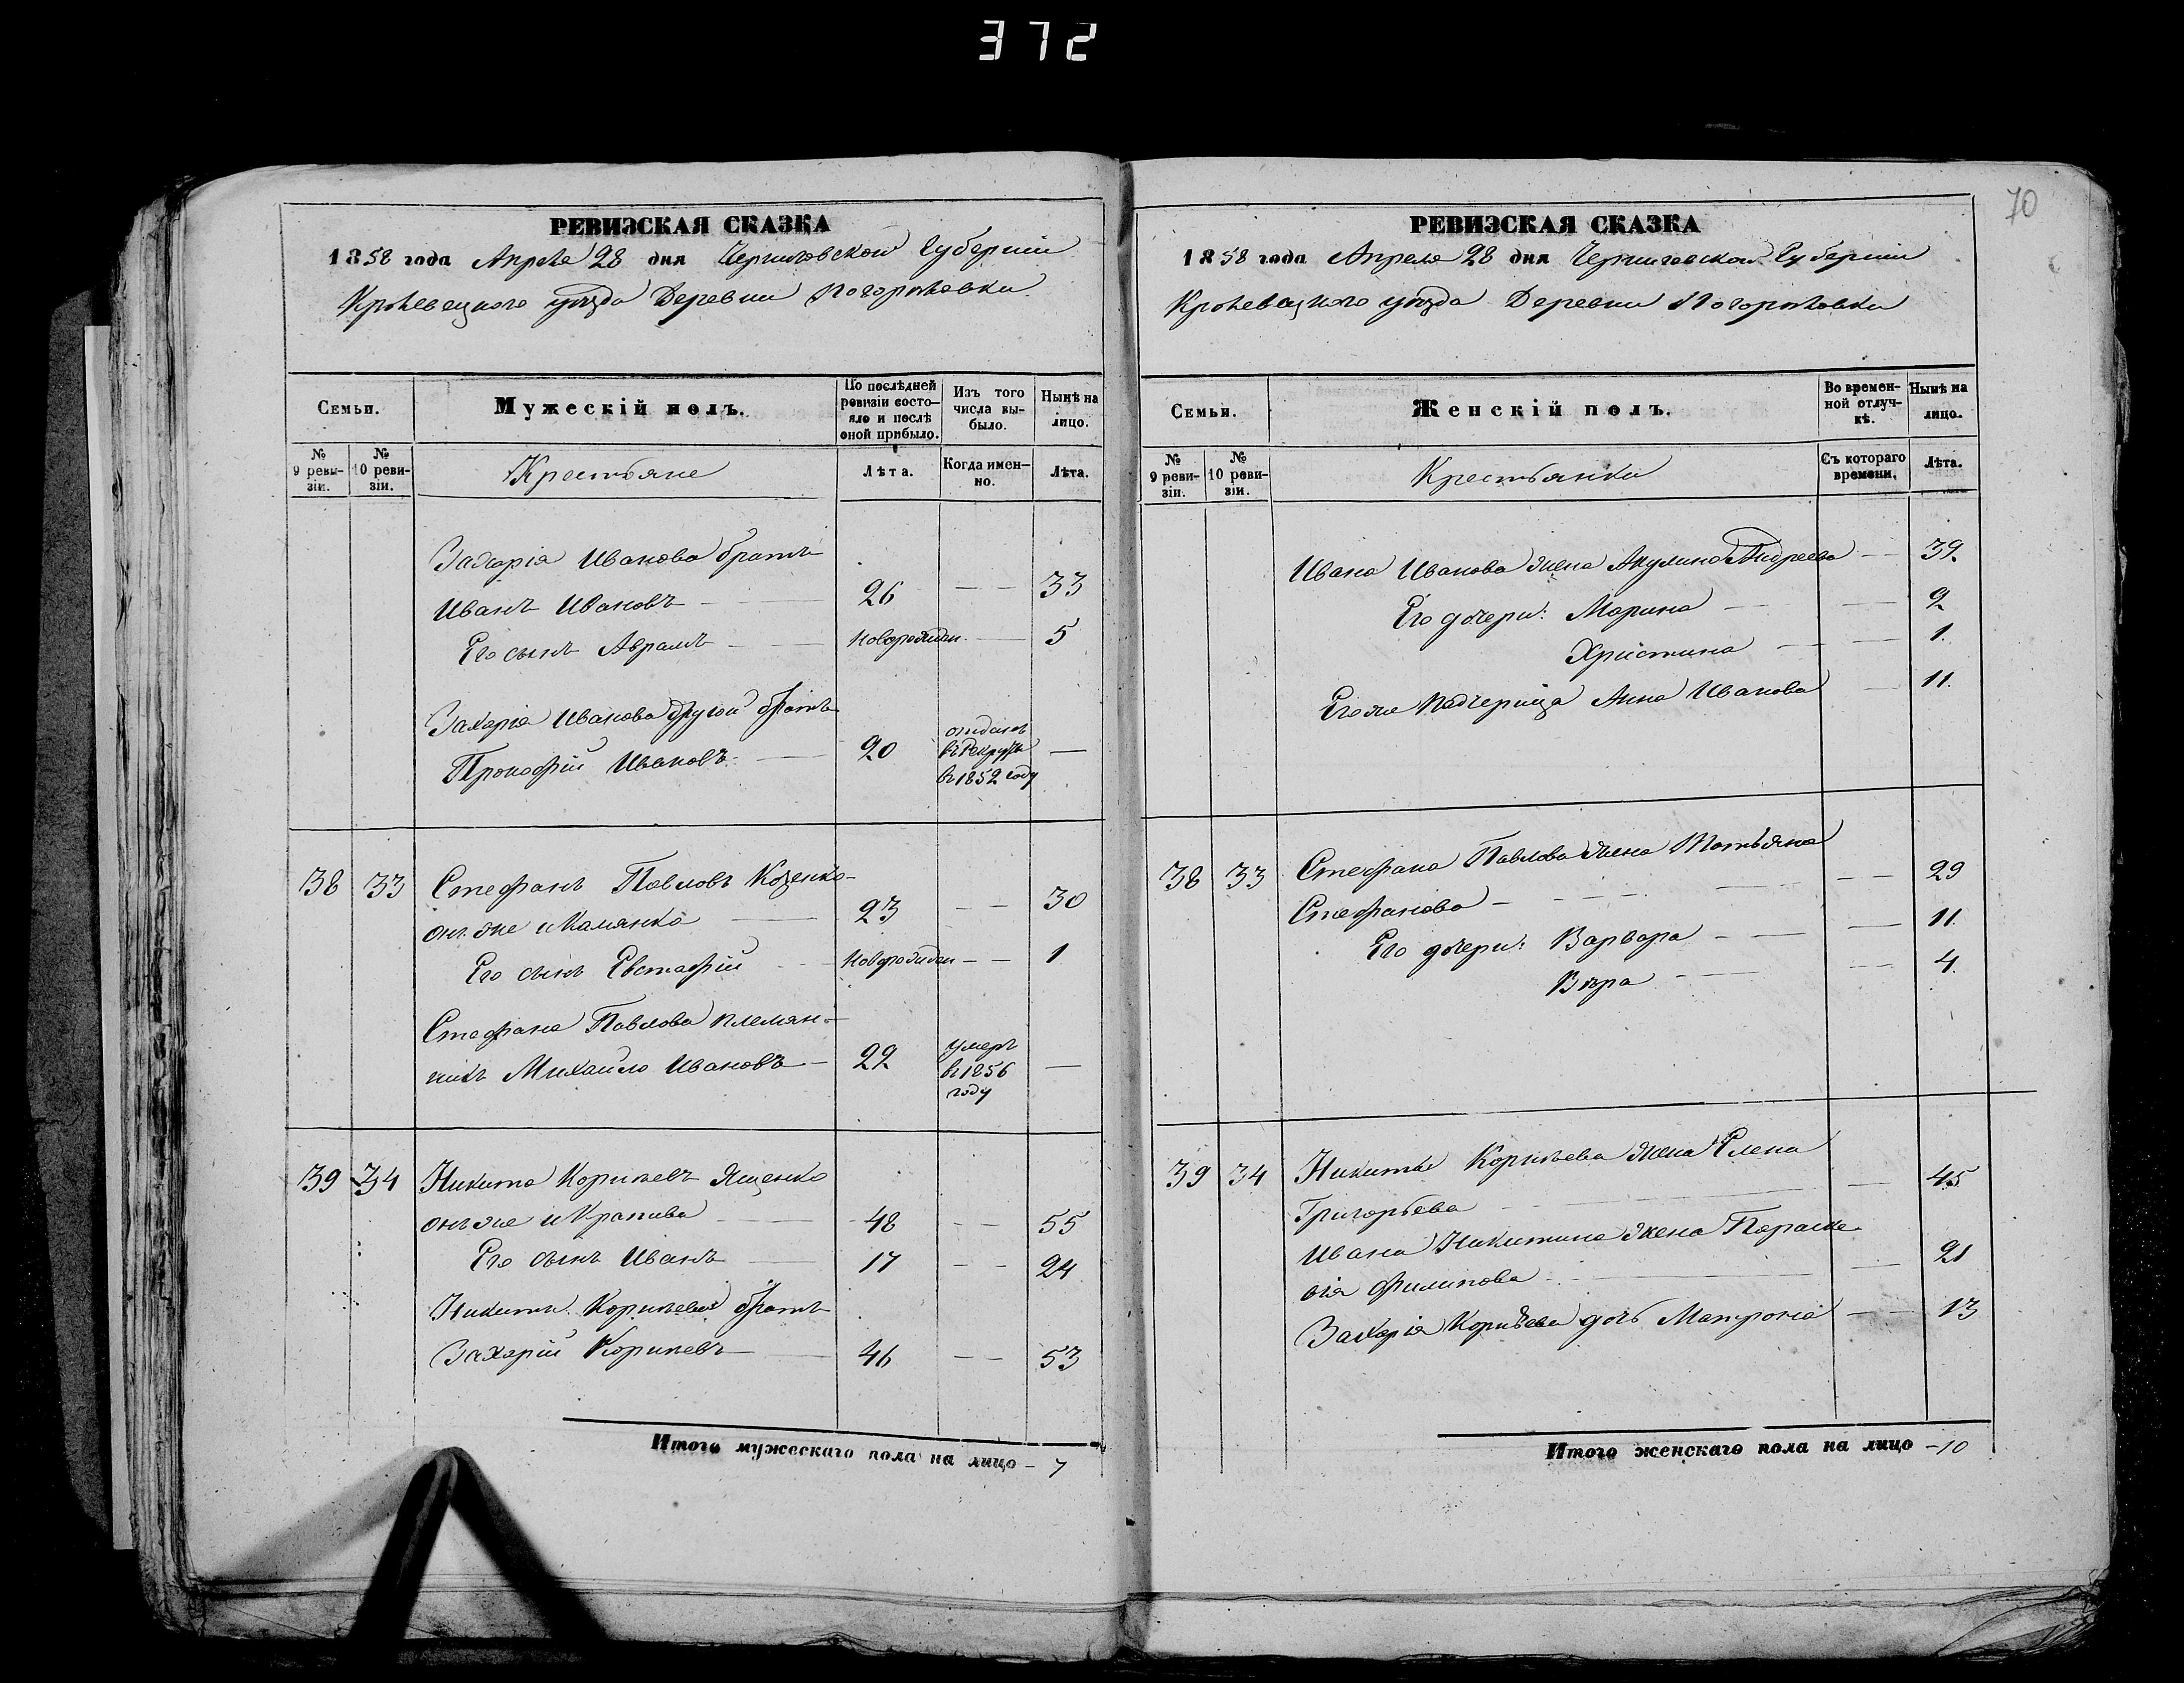 372
70
РЕВИЗСКАЯ СКАЗКА
1858 года Апреля 28 дня Черниговской Губерніи
Кролевецкого уѣзда Деревни Погорѣловки
Семьи.
Мужескій полъ.
По послѣдней ревизіи состояло и послѣ оной прибыло.
Изъ того числа выбыло.
Нынѣ на лицо.
№ 9 ревизіи.
№ 10 ревизіи.
Крестьяне
Лѣта.
Когда именно.
Лѣта.
Захарія Иванова братъ
Иванъ Ивановъ 26 — — 33
Его сынъ Аврамъ новорожден. — 5
Захарія Иванова другой братъ
Прокофій Ивановъ 20 отданъ въ рекруты въ 1852 году —
38 33 Стефанъ Павловъ Козенко
онъ же и Калянко 23 — — 30
Его сынъ Евстафій новорожден — — 1
Стефана Павлова племян-
никъ Михайло Ивановъ 22 умеръ въ 1856 году —
39 34 Никита Корнѣевъ Ященко
онъ же и Крапива 48 — — 55
Его сынъ Иванъ 17 — — 24
Никиты Корнѣева братъ
Захарій Корнѣевъ 46 — — 53
Итого мужескаго пола на лицо — 7
РЕВИЗСКАЯ СКАЗКА
1858 года Апреля 28 дня Черниговской Губерніи
Кролевецкого уѣзда Деревни Погорѣловки
Семьи.
Женскій полъ.
Во временной отлучкѣ.
Нынѣ на лицо.
№ 9 ревизіи.
№ 10 ревизіи.
Крестьянки
Съ котораго времени.
Лѣта.
Ивана Иванова жена Акулина Андреева — 39
Его дочери: Марина — 9
Христина — 1.
Его же падчерица Анна Иванова — 11.
38 33 Стефана Павлова жена Татьяна
Стефанова — — 29
Его дочери: Варвара — 11.
Вѣра — 4.
39 34 Никиты Корнѣева жена Елена
Григорьева — 45
Ивана Никитина жена Параске-
вія Филипова — 21
Захарія Корнѣева дочь Матрона — 13
Итого женскаго пола на лицо — 10